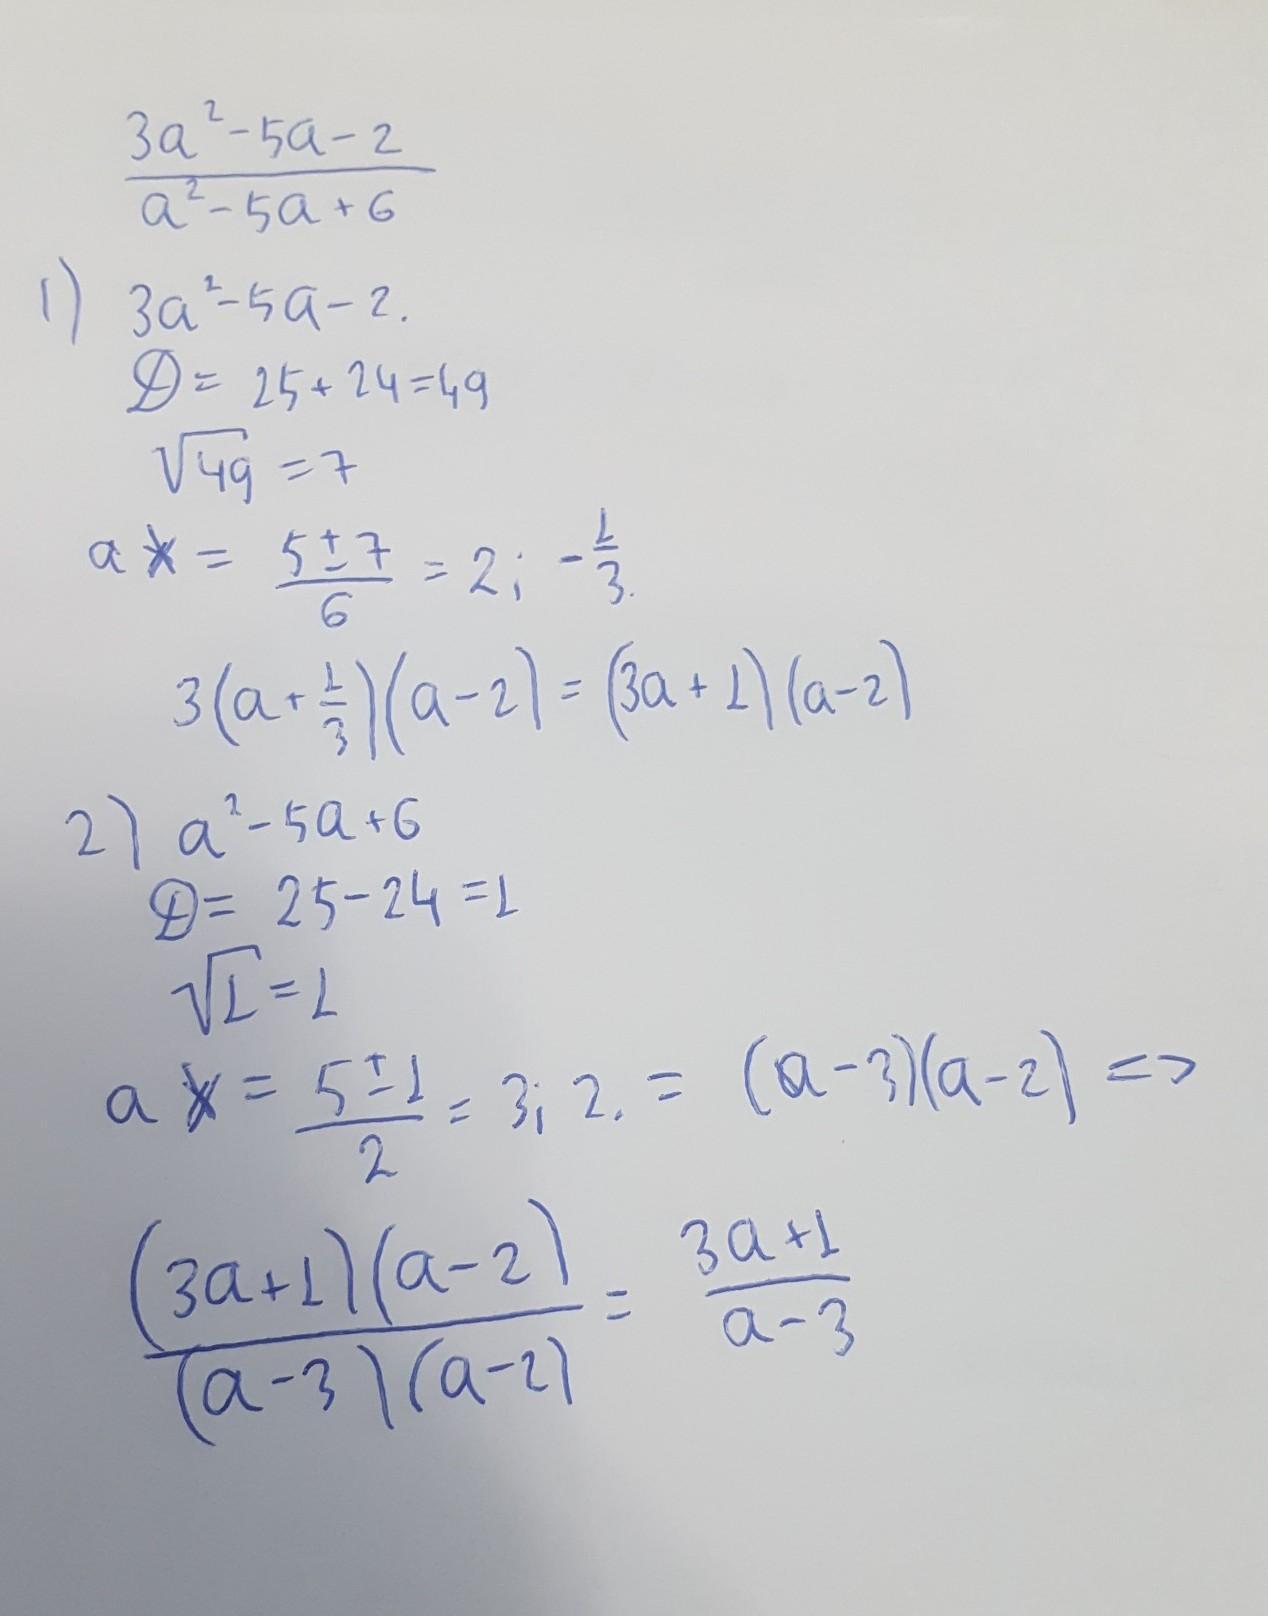 3a²-5a-2 / a²-5a+6
1) 3a²-5a-2.
D = 25+24=49
√49 =7
a = 5±7 / 6 = 2; -1/3.
3(a+1/3)(a-2) = (3a+1)(a-2)
2) a²-5a+6
D = 25-24=1
√1=1
a = 5±1 / 2 = 3; 2. = (a-3)(a-2) <=>
(3a+1)(a-2) / (a-3)(a-2) = 3a+1 / a-3